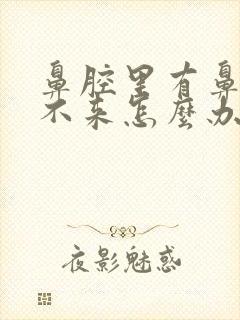 鼻腔里有鼻
不来怎麼办
夜影魅惑